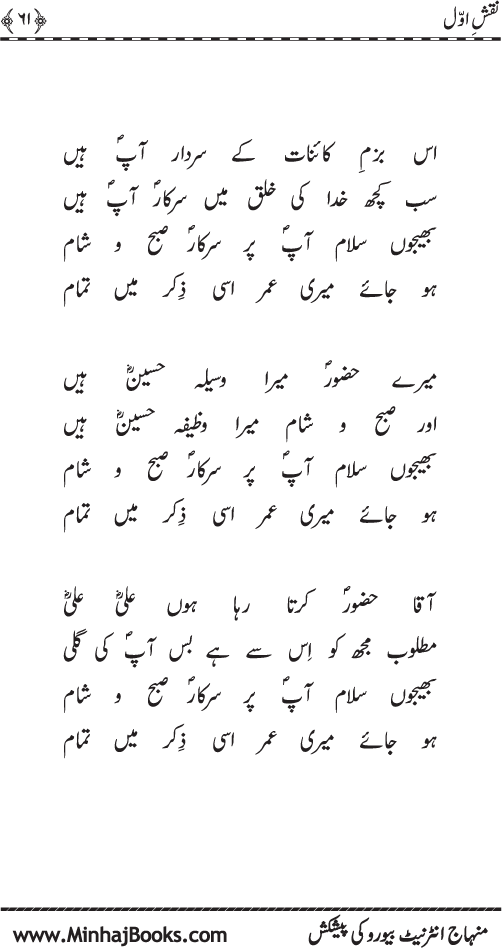 نقشِ اوّل ﴿۶۱﴾
اس بزمِ کائنات کے سردار آپؐ ہیں
سب کچھ خدا کی خلق میں سرکارؐ آپؐ ہیں
بھیجوں سلام آپؐ پر سرکارؐ صبح و شام
ہو جائے میری عمر اسی ذِکر میں تمام
میرے حضورؐ میرا وسیلہ حسینؓ ہیں
اور صبح و شام میرا وظیفہ حسینؓ ہیں
بھیجوں سلام آپؐ پر سرکارؐ صبح و شام
ہو جائے میری عمر اسی ذِکر میں تمام
آقا حضورؐ کرتا رہا ہوں علیؓ علیؓ
مطلوب مجھ کو اِس سے ہے بس آپؐ کی گلی
بھیجوں سلام آپؐ پر سرکارؐ صبح و شام
ہو جائے میری عمر اسی ذِکر میں تمام
منہاج انٹرنیٹ بیورو کی پیشکش www.MinhajBooks.com